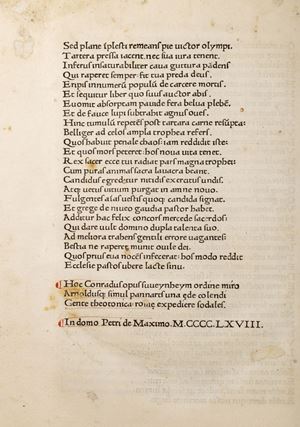 Sed plane īplesti remeans pie victor olympi.
Tartera pressa iacent. nec sua iura tenent.
Inferus insaturabiliter caua guttura pādens
Qui raperet semper: fit tua preda deus.
Eripis innumerū populū de carcere mortis.
Et sequitur liber quo suus auctor abis.
Euomit absorptam pauide fera belua plebē.
Et de fauce lupi subtrahit agnus oues.
Hinc tumulū repetēs post tartara carne resūpta:
Belliger ad celos ampla trophea refers.
Quos habuit penale chaos: iam reddidit iste:
Et quos mors peteret: hos noua uita tenet.
Rex sacer ecce tui radiat pars magna trophei:
Cum puras animas sacra lauacra beant.
Candidus egreditur nitidis exercitus undis.
Atq; uetus uitium purgat in amne nouo.
Fulgentes aīas uestis quoq; candida signat.
Et grege de niueo gaudia pastor habet.
Additur hac felix concors mercede sacerdos
Qui dare uult domino dupla talenta suo.
Ad meliora trahens gentili errore uagantes:
Bestia ne raperet munit ouile dei.
Quos prius eua nocēs infecerat: hos modo reddit
Ecclesie pastos ubere lacte sinu.
Hoc Conradus opus suueynheym ordine miro
Arnoldusq; simul pannarts una ęde colendi
Gente theotonica: romę expediere sodales.
In domo Petri de Maximo. M.CCCC.LXVIII.